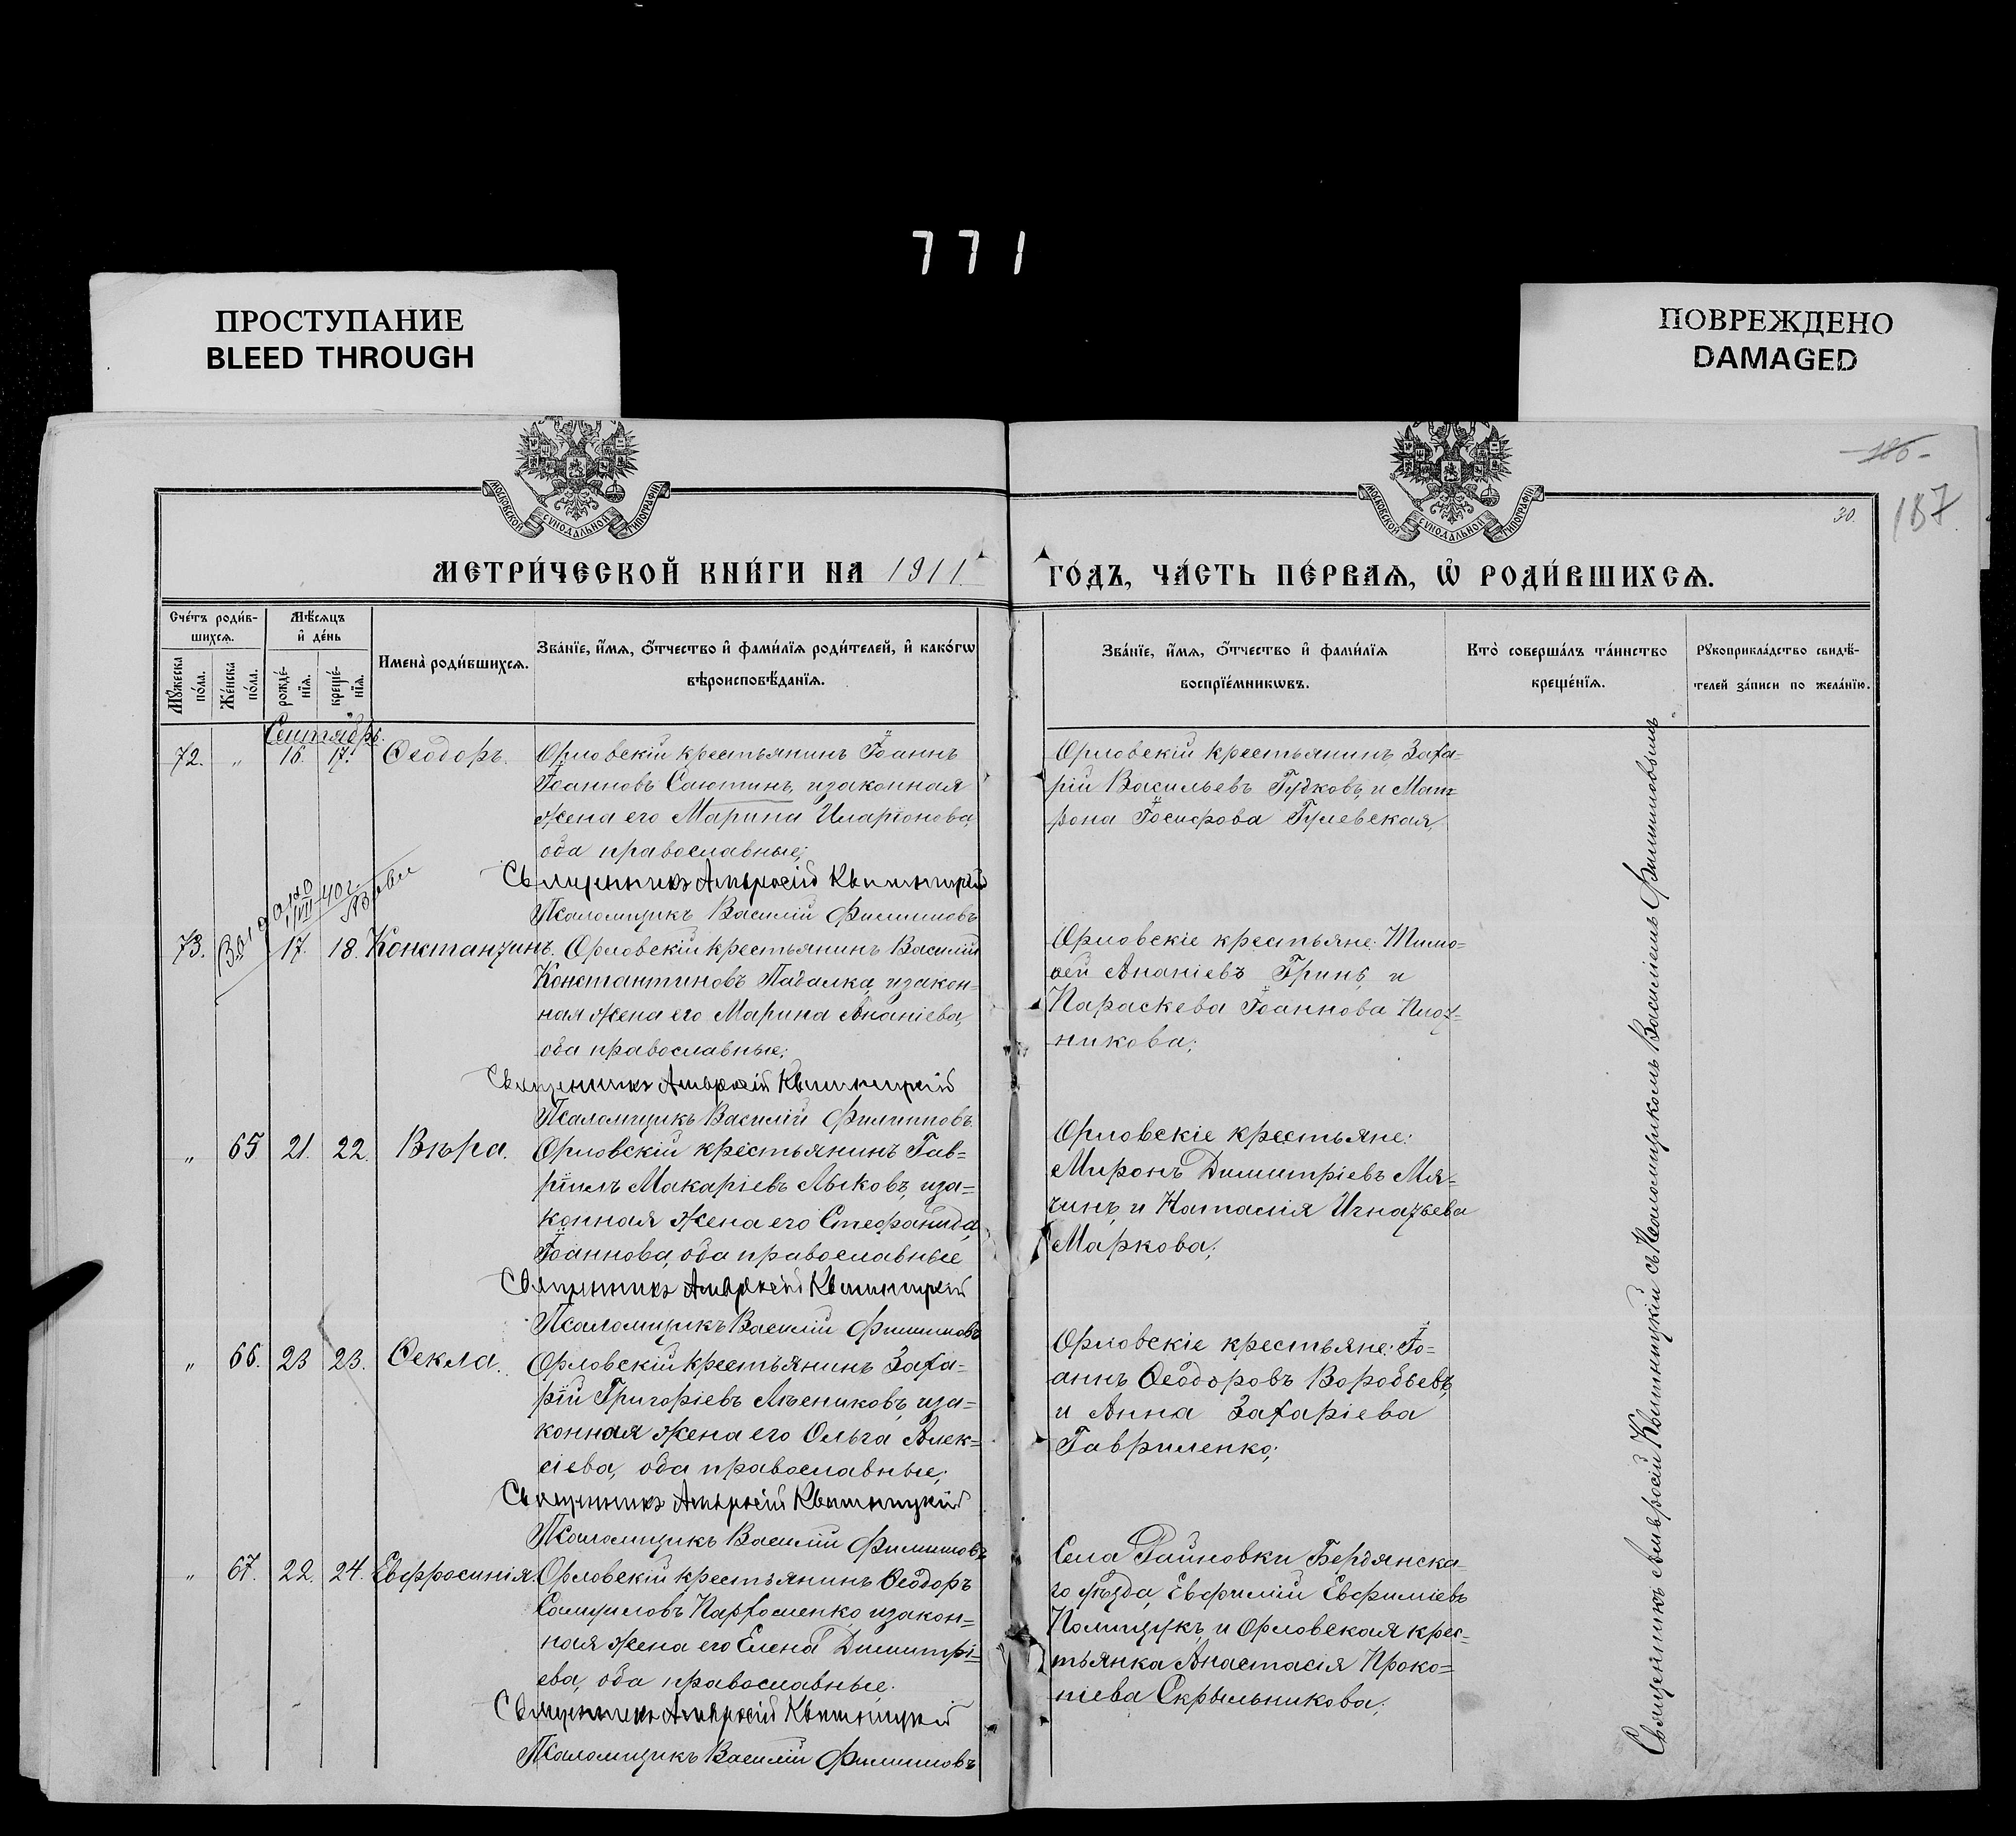 771
ПРОСТУПАНИЕ
BLEED THROUGH
ПОВРЕЖДЕНО
DAMAGED
МОСКОВСКОЙ СѴНОДАЛЬНОЙ ТИПОГРАФІИ
МОСКОВСКОЙ СѴНОДАЛЬНОЙ ТИПОГРАФІИ
30.
187
МЕТРИ́ЧЕСКОЙ КНИ́ГИ НА 1911
ГО́ДЪ, ЧА́СТЬ ПЕ́РВАѦ, Ѡ҆ РОДИ́ВШИХСѦ.
Сче́тъ роди́в-
шихсѧ.
Мꙋ́жеска
по́ла.
Же́нска
по́ла.
Мѣ́сѧцъ
и҆ де́нь
рожде́-
нїѧ.
креще́-
нїѧ.
Имена̀ роди́вшихсѧ.
Зва́нїе, и҆́мѧ, ѻ҆́тчество и҆ фами́лїѧ роди́телей, и҆ како́гѡ
вѣроисповѣ́данїѧ.
Зва́нїе, и҆́мѧ, ѻ҆́тчество и҆ фами́лїѧ
воспрїе́мникѡвъ.
Кто̀ соверша́лъ та́инство
креще́нїѧ.
Рꙋкоприкла́дство свидѣ́-
телей за́писи по жела́нїю.
Сентябрь.
72. " 16. 17. Ѳеодоръ.
Орловскій крестьянинъ Іоаннъ
Іоанновъ Саютинъ, и законная
жена его Марина Иларіонова,
оба православные;
Священникъ Амвросій Квитницкій
Псаломщикъ Василій Филипповъ
Орловскій крестьянинъ Заха-
рій Васильевъ Гудковъ, и Мат-
рона Іосифова Гулевская,
73. 17. 18. Константинъ.
Орловскій крестьянинъ Василій
Константиновъ Падалка, и закон-
ная жена его Марина Ананіева,
оба православные;
Священникъ Амвросій Квитницкій
Псаломщикъ Василій Филипповъ
Орловскіе крестьяне: Тимо-
ѳей Ананіевъ Гринь, и
Параскева Іоаннова Плот-
никова;
" 65 21. 22. Вѣра.
Орловскій крестьянинъ Гав-
ріилъ Макаріевъ Лыковъ, и за-
конная жена его Стефанида
Іоаннова, оба православные
Священникъ Амвросій Квитницкій
Псаломщикъ Василій Филипповъ
Орловскіе крестьяне:
Миронъ Димитріевъ Мя-
чинъ, и Наталія Игнатьева
Маркова;
" 66. 23 23. Ѳекла.
Орловскій крестьянинъ Заха-
рій Григоріевъ Лѣсниковъ, и за-
конная жена его Ольга Алек-
сіева, оба православные;
Священникъ Амвросій Квитницкій
Псаломщикъ Василій Филипповъ
Орловскіе крестьяне: Іо-
аннъ Ѳеодоровъ Воробьевъ,
и Анна Захаріева
Гавриленко;
" 67. 22. 24. Евфросинія.
Орловскій крестьянинъ Ѳеодоръ
Самуиловъ Пархоменко, и закон-
ная жена его Елена Димитрі-
ева, оба православные.
Священникъ Амвросій Квитницкій
Псаломщикъ Василій Филипповъ
Села Райновки Бердянска-
го уѣзда, Евфимій Евфиміевъ
Полищукъ, и Орловская крес-
тьянка Анастасія Проко-
піева Скрыльникова;
Священникъ Амвросій Квитницкій съ Псаломщикомъ Василіемъ Филипповымъ